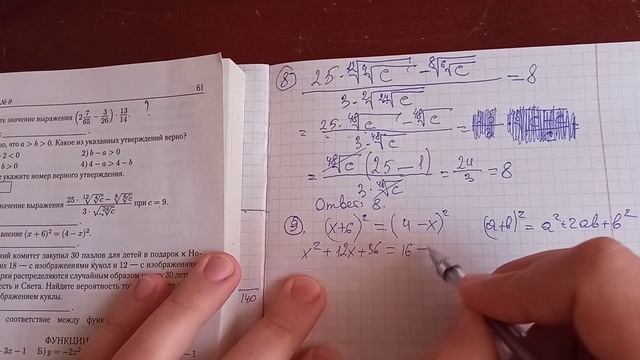 № 9
61
те значение выражения (2 7/65 − 3/26) · 13/14.
?
но, что a > b > 0. Какое из указанных утверждений верно?
< 0
2) b − a > 0
4) 4 − a > 4 − b
е укажите номер верного утверждения.
начение выражения при c = 9.
авнение (x + 6)² = (4 − x)².
ский комитет закупил 30 пазлов для детей в подарок к Но-
них 18 — с изображениями кукол и 12 — с изображениями
рки распределяются случайным образом между 30 детьми,
есть и Света. Найдите вероятность того,
ображением куклы.
соответствие между
ФУНКЦИИ
− 3x − 1
Б) y = −2x²
− 1
140
8
25 · ¹²√⁴√c − ⁸√⁶√c / 3 · ²√²⁴√c = 8
= 25 · ⁴⁸√c − ⁴⁸√c / 3 · ⁴⁸√c =
= ⁴⁸√c (25 − 1) / 3 · ⁴⁸√c = 24/3 = 8
Ответ: 8.
9. (x+6)² = (4 − x)² (a+b)² = a² + 2ab + b²
x² + 12x + 36 = 16 −